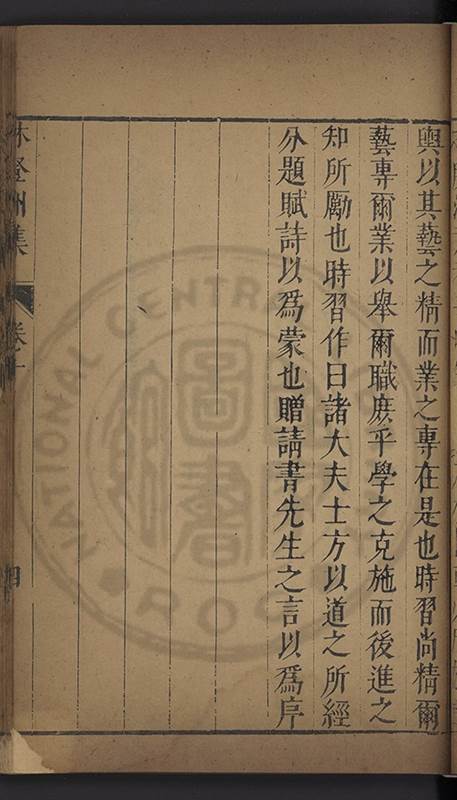 輿以其藝之精而業之專在是也時習尚精爾
藝專爾業以舉爾職庶乎學之克施而後進之
知所勵也時習作曰諸大夫士方以道之所經
分題賦詩以爲蒙也贈請書先生之言以爲序
林登州集
卷十
四
NATIONAL CENTRAL